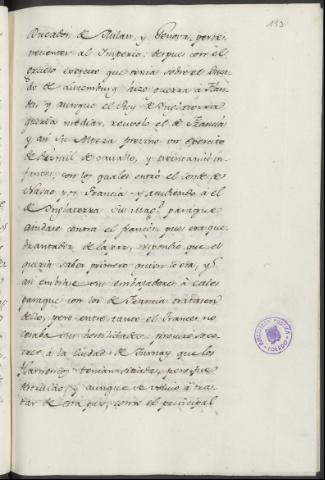 133
Ducados de Milan, y Genova, perte-
necientes al Imperio: despues con el
exercito que tenia sobre el Duca-
do de Luxemburg hizo guerra á Flan-
des, y aunque el Rey de Inglaterra
queria mediar, recusolo el de Francia
y asi Su Alteza previno un exercito
de mil de cavallo, y treinta mil in-
fantes, con los quales entró el Conde de
Nasao en Francia y acudiendo á el
de Inglaterra Su Mag.d para que
ayudase contra el frances, pues era que-
brantador de la paz, respondió que el
queria saber primero quien lo era, y q.e
asi embiase sus embaxadores á Cales
para que con los de Francia tratasen
dello, pero entre tanto el Frances no
cesaba sus hostilidades, procuró
á la Ciudad de Turnay que los
Flamencos tenian sitiada, pero fue
, y aunque se volvió á tra-
tar de esta paz, como el principal
BIBLIOTECA PUBLICA
TOLEDO